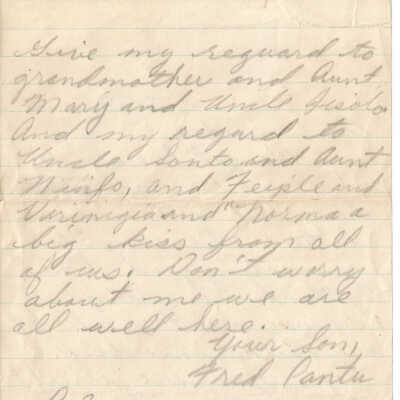 Give my reguard to
grandmother and Aunt
Mary and Uncle
And my regard to
Uncle Santo and Aunt
Ninfo, and Feiple and
Virinigia and Norma a
big kiss from all
of us. Don't worry
about me we are
all well here.
Your Son,
Fred Pantu